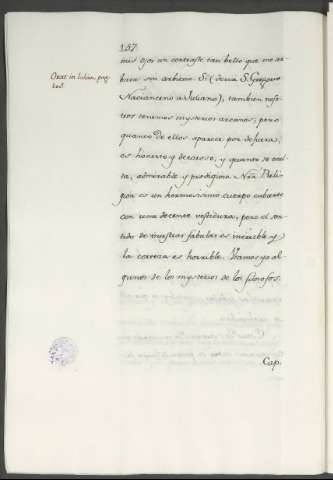 157.
mis ojos un contraste tan bello que me ar-
Orat. in Julian. pag.
bata sin arbitrio. Si (decia S. Gregorio
Nacianceno a Juliano), tambien noso-
tros tenemos mysterios arcanos; pero
quanto de ellos aparece por defuera,
es honesto y decoroso, y quanto se ocul-
ta, admirable y prodigioso. Nra. Reli-
gion es un hermosisimo cuerpo cubierto
con una decente vestidura; pero el sen-
tido de vuestras fabulas es increible y
la corteza es horrible. Vamos ya al-
gunos de los mysterios de los filosofos.
Cap.